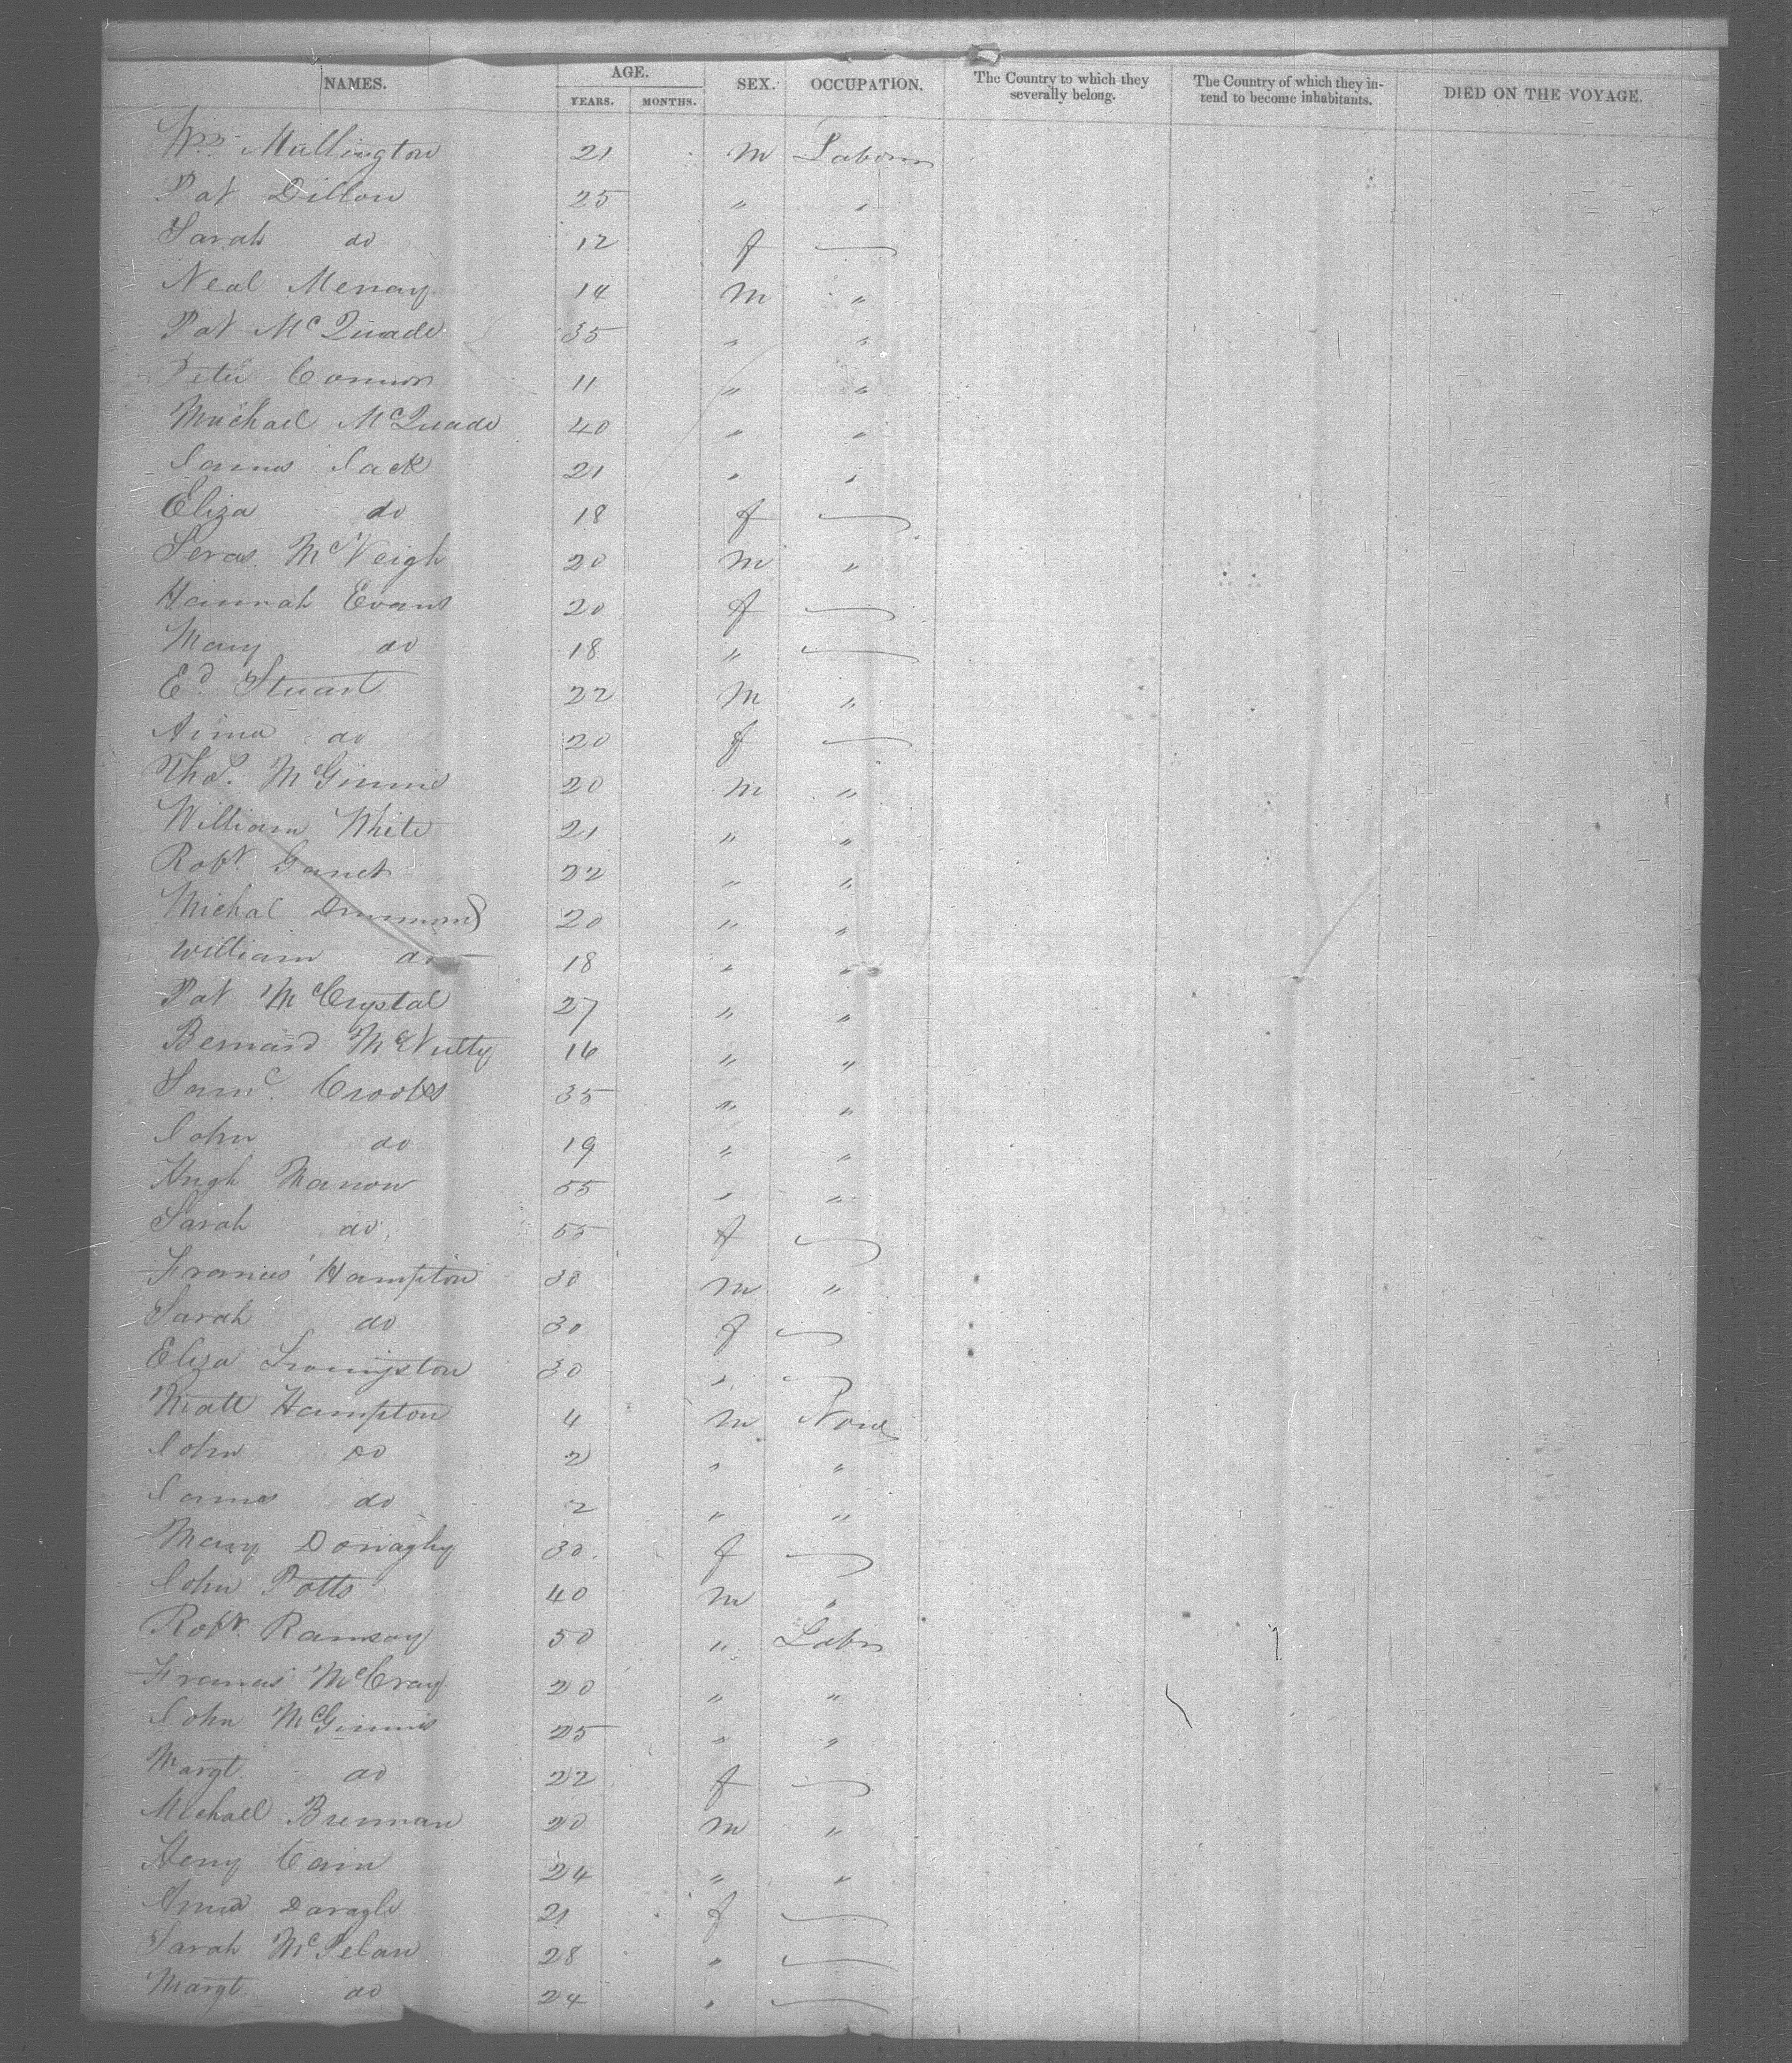 NAMES. AGE. YEARS. MONTHS. SEX. OCCUPATION. The Country to which they severally belong. The Country of which they intend to become inhabitants. DIED ON THE VOYAGE.
Wm Mullington 21 M Laborer
Pat Dillon 25 " "
Sarah do 12 f
Neal Menay 14 M "
Pat McQuade 35 " "
Peter Connor 11 " "
Michael McQuade 40 " "
James Jack 21 " "
Eliza do 18 f
McVeigh 20 M "
Hannah Evans 20 f
Mary do 18 "
Ed Stuart 22 M "
Anna do 20 f
Thos. McGinnis 20 M "
William White 21 " "
Robt. 22 " "
Michal Drummond 20 " "
William do 18 " "
Pat McCrystal 27 " "
Bernard McNulty 16 " "
Saml. Crooks 35 " "
John do 19 " "
Hugh 55 " "
Sarah do 55 f
Francis Hampton 30 M "
Sarah do 30 f
Eliza Livingston 30 "
Matt Hampton 4 M None
John do 2 " "
James do 2 " "
Mary Donaghy 30 f
John Potts 40 M "
Robt. Ramsay 50 " Labr
Francis McCray 20 " "
John McGinnis 25 " "
Margt. do 22 f
Michael Brennan 20 M "
Henry Cain 24 " "
Anna 21 f
Sarah 28 "
Margt. do 24 "